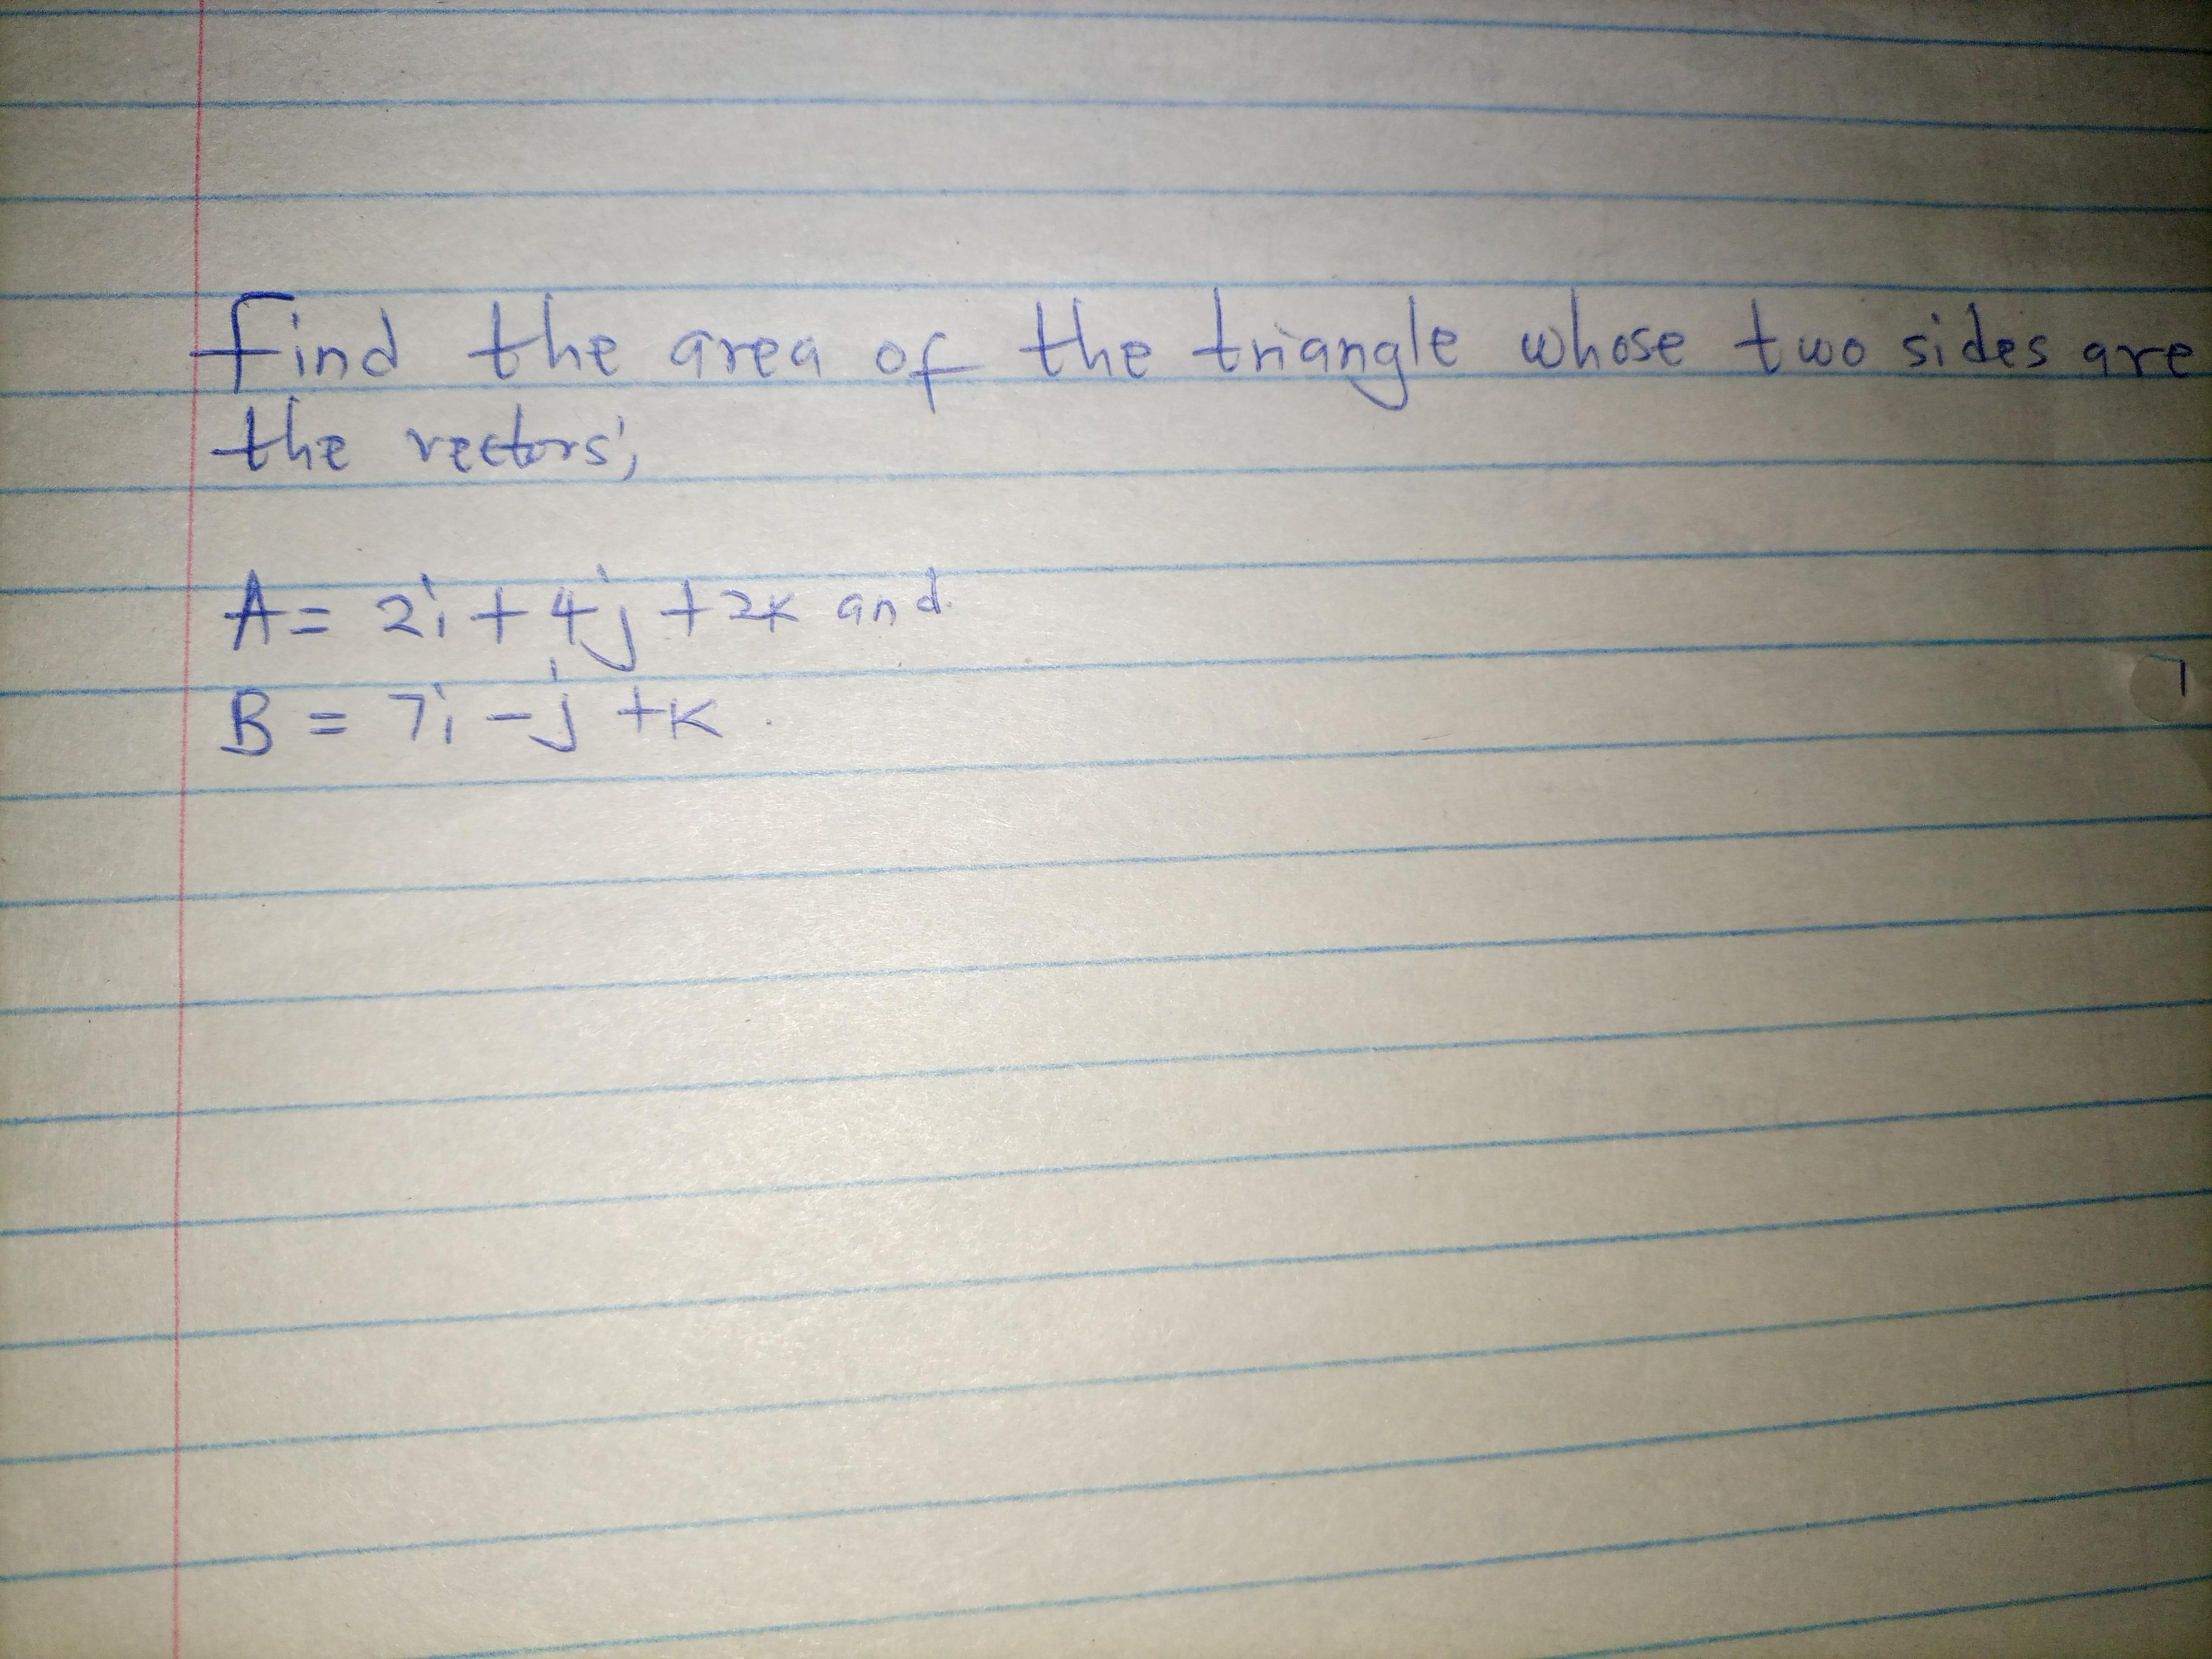 find the area of the triangle whose two sides are
the vectors;
A = 2i + 4j + 2k and
B = 7i - j + k.